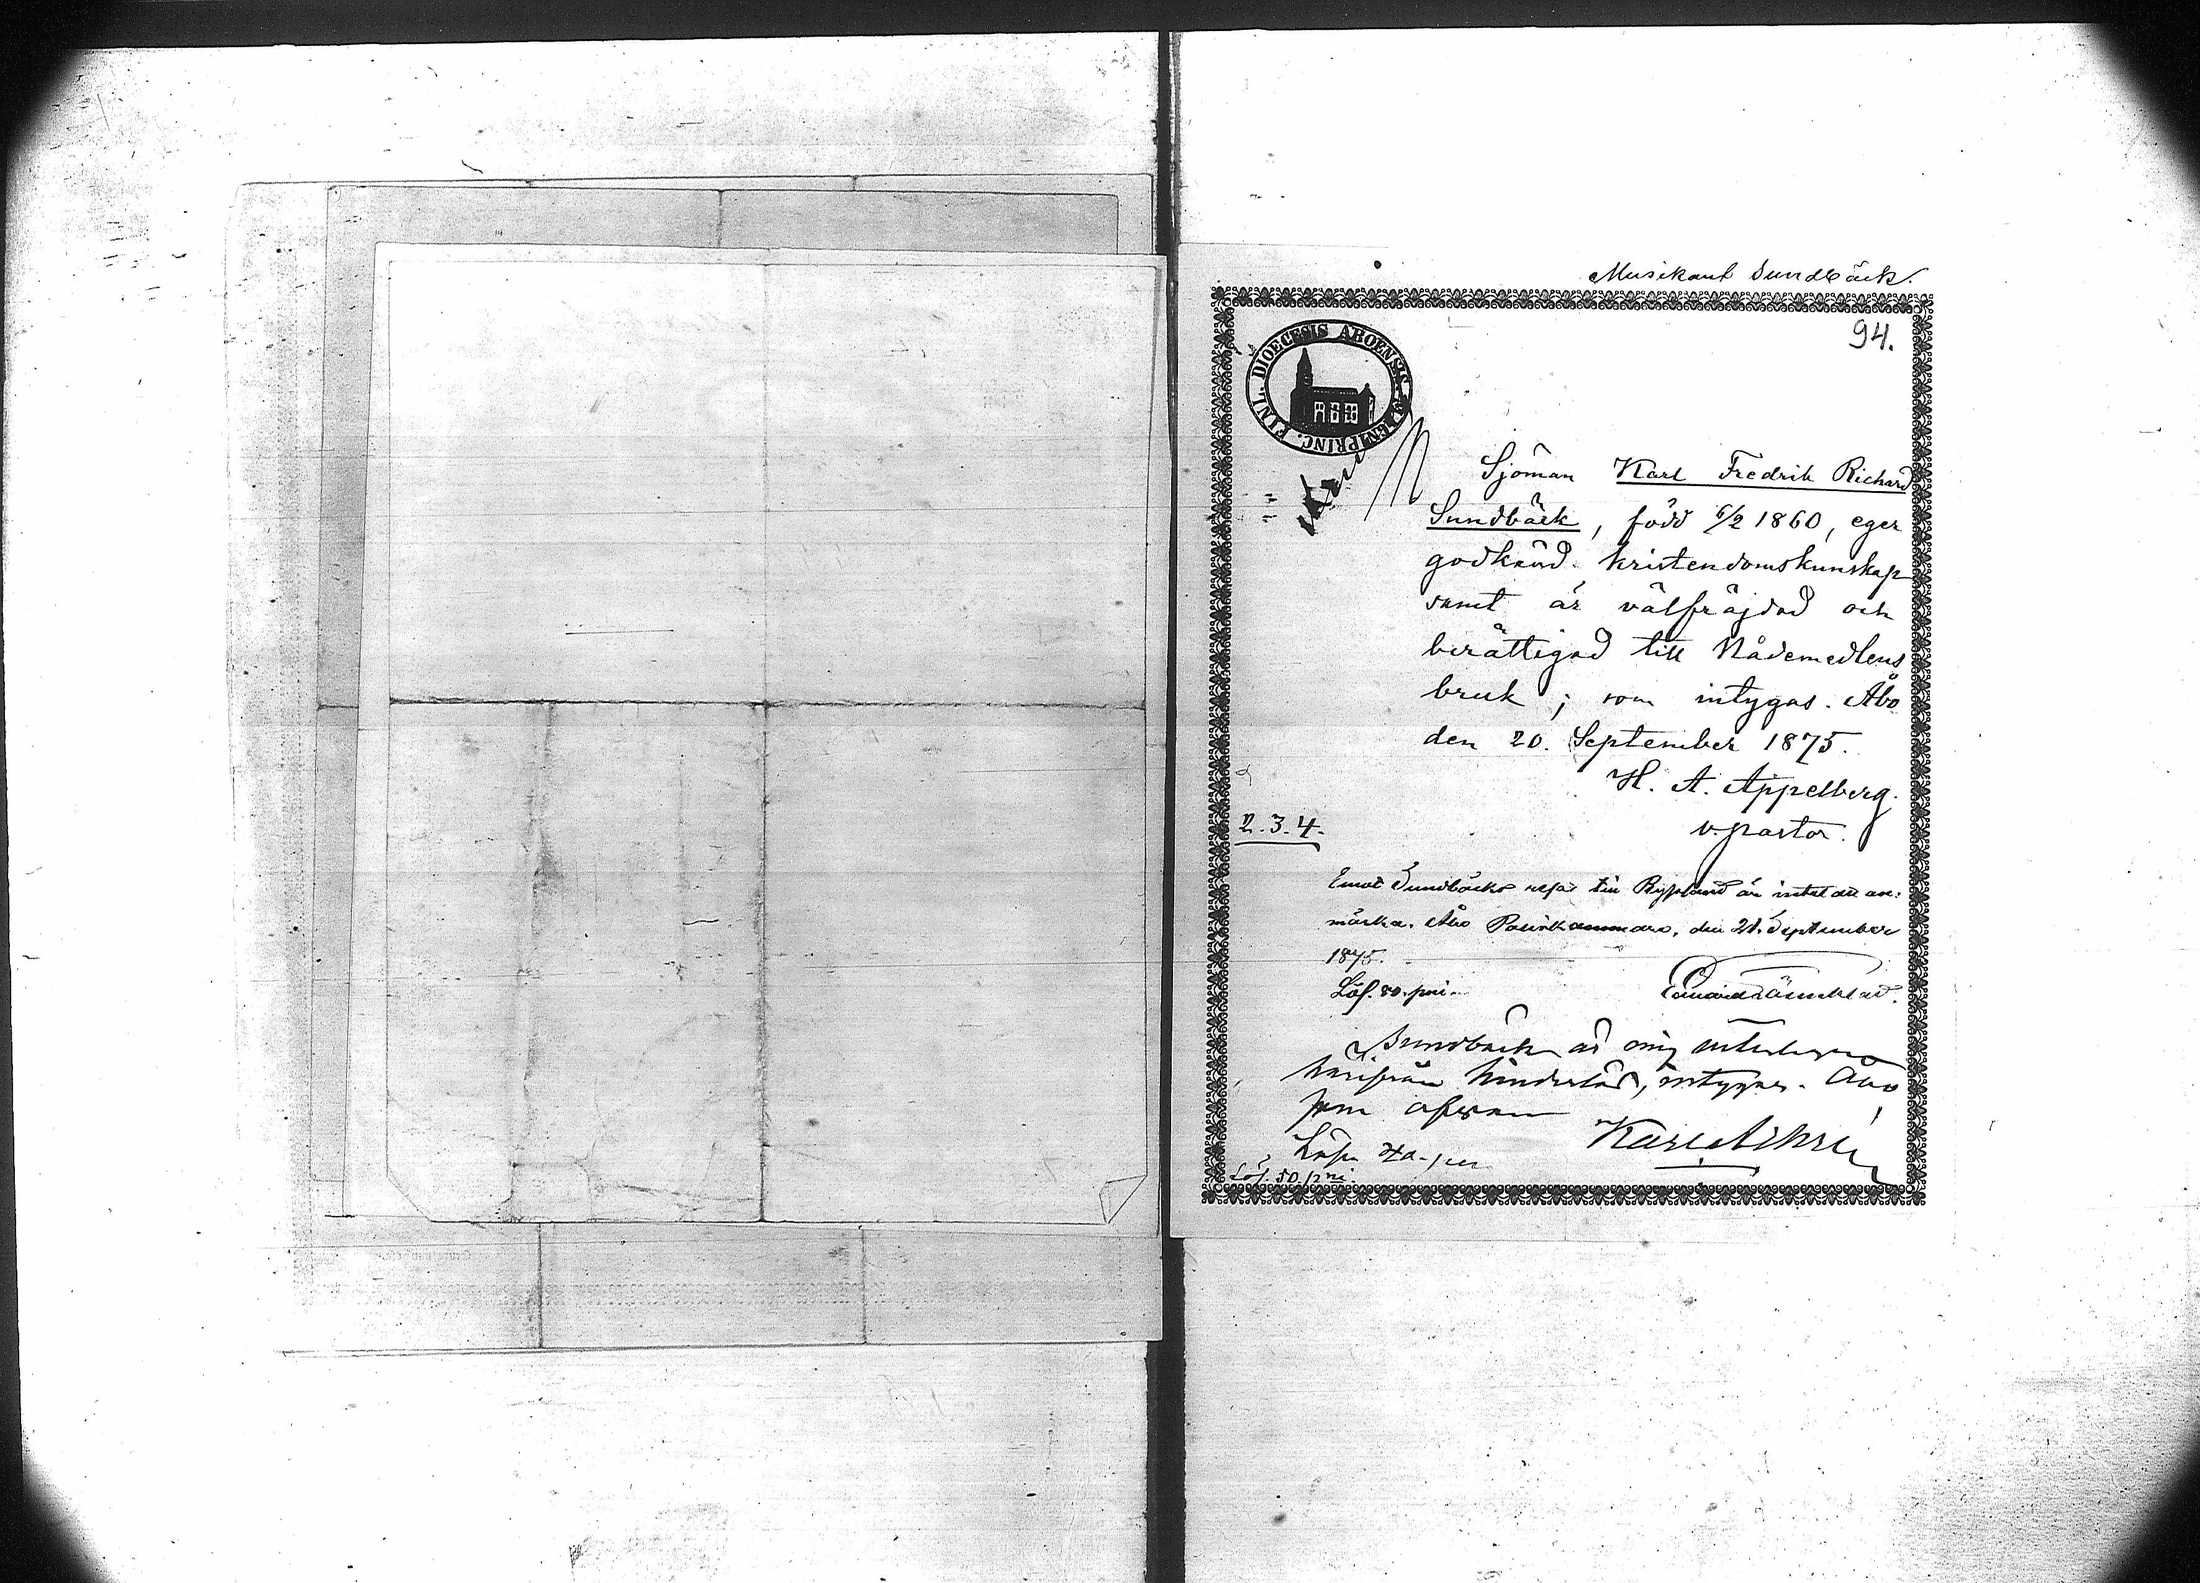 Musikant Sundbäck.
94.
FINL. DIOECESIS ABOENSIS PRINC.
Sjöman Karl Fredrik Richard
Sundbäck, född 6/2 1860, eger
godkänd kristendomskunskap
samt är välfräjdad och
berättigad till Nådemedlens
bruk; som intygas. Åbo
den 20. September 1875.
H. A. Appelberg.
v. pastor.
2. 3. 4.
Emot Sundbäcks resa till Ryssland är intet att an-
märka. Åbo Poliskammare, den 21. September
1875.
Lös. 80. pni.
Sundbäck är mig
härifrån hinderlös, intygas. Åbo
som ofvan
Lösen pni
Lös. 50 pni.